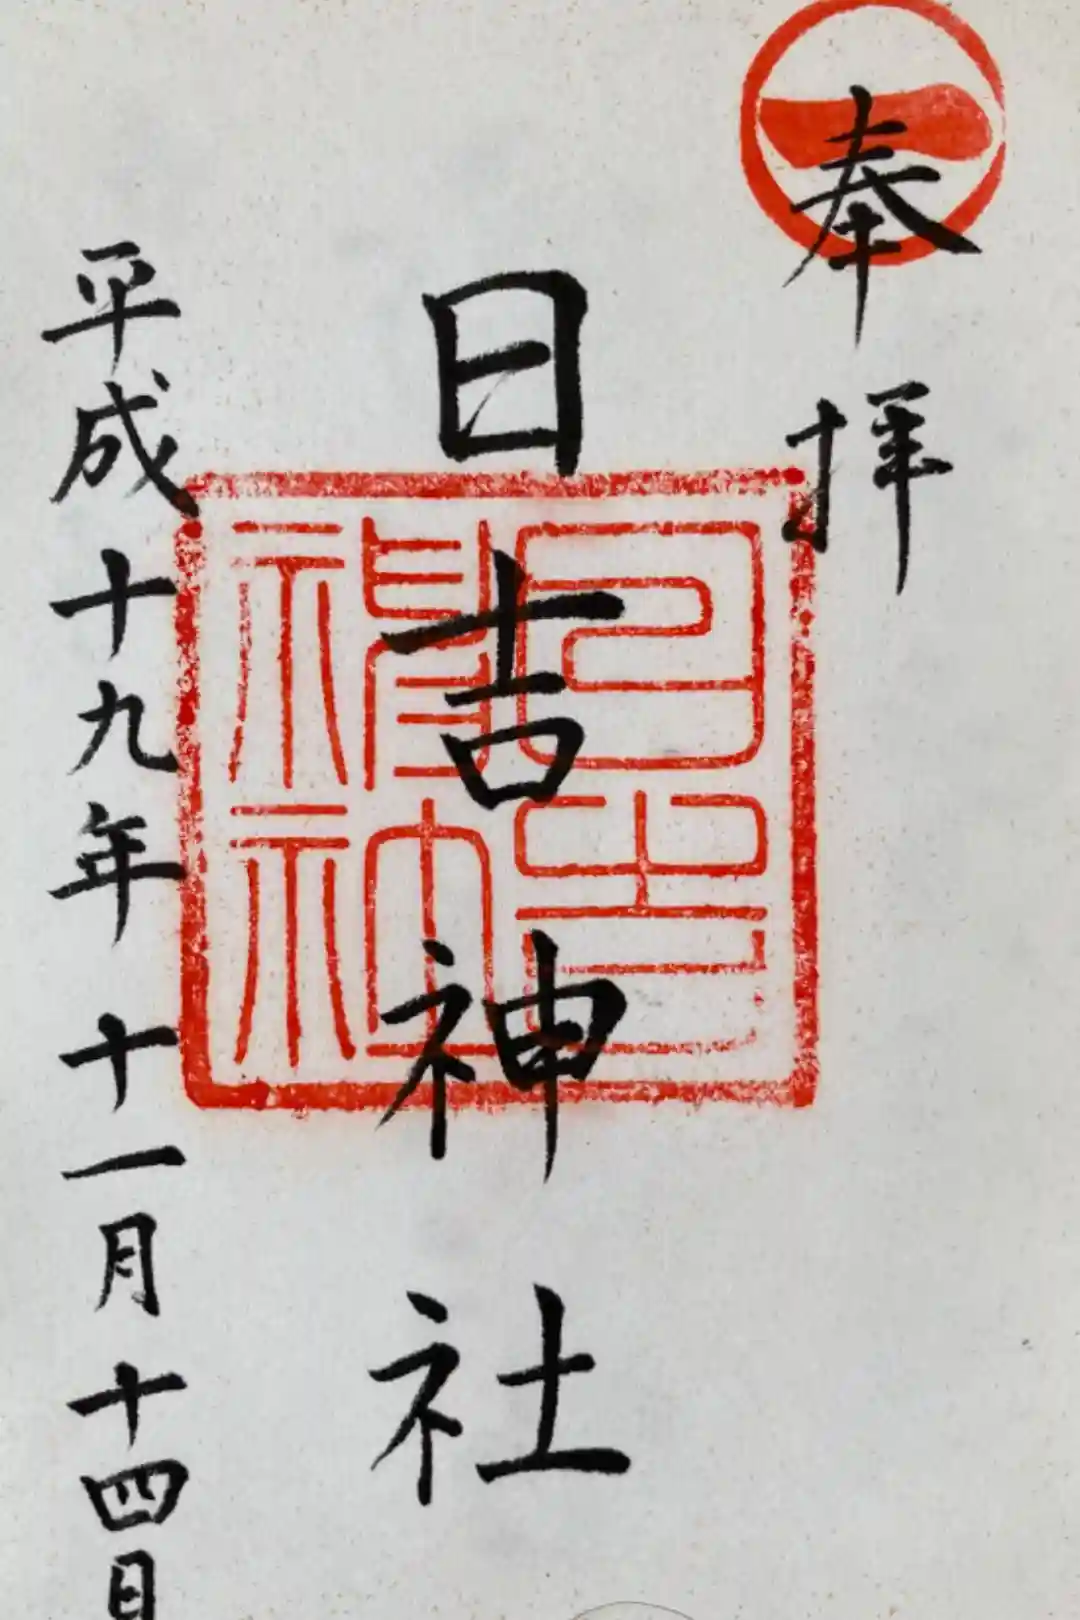 奉拝
日吉神社
平成十九年十一月十四日